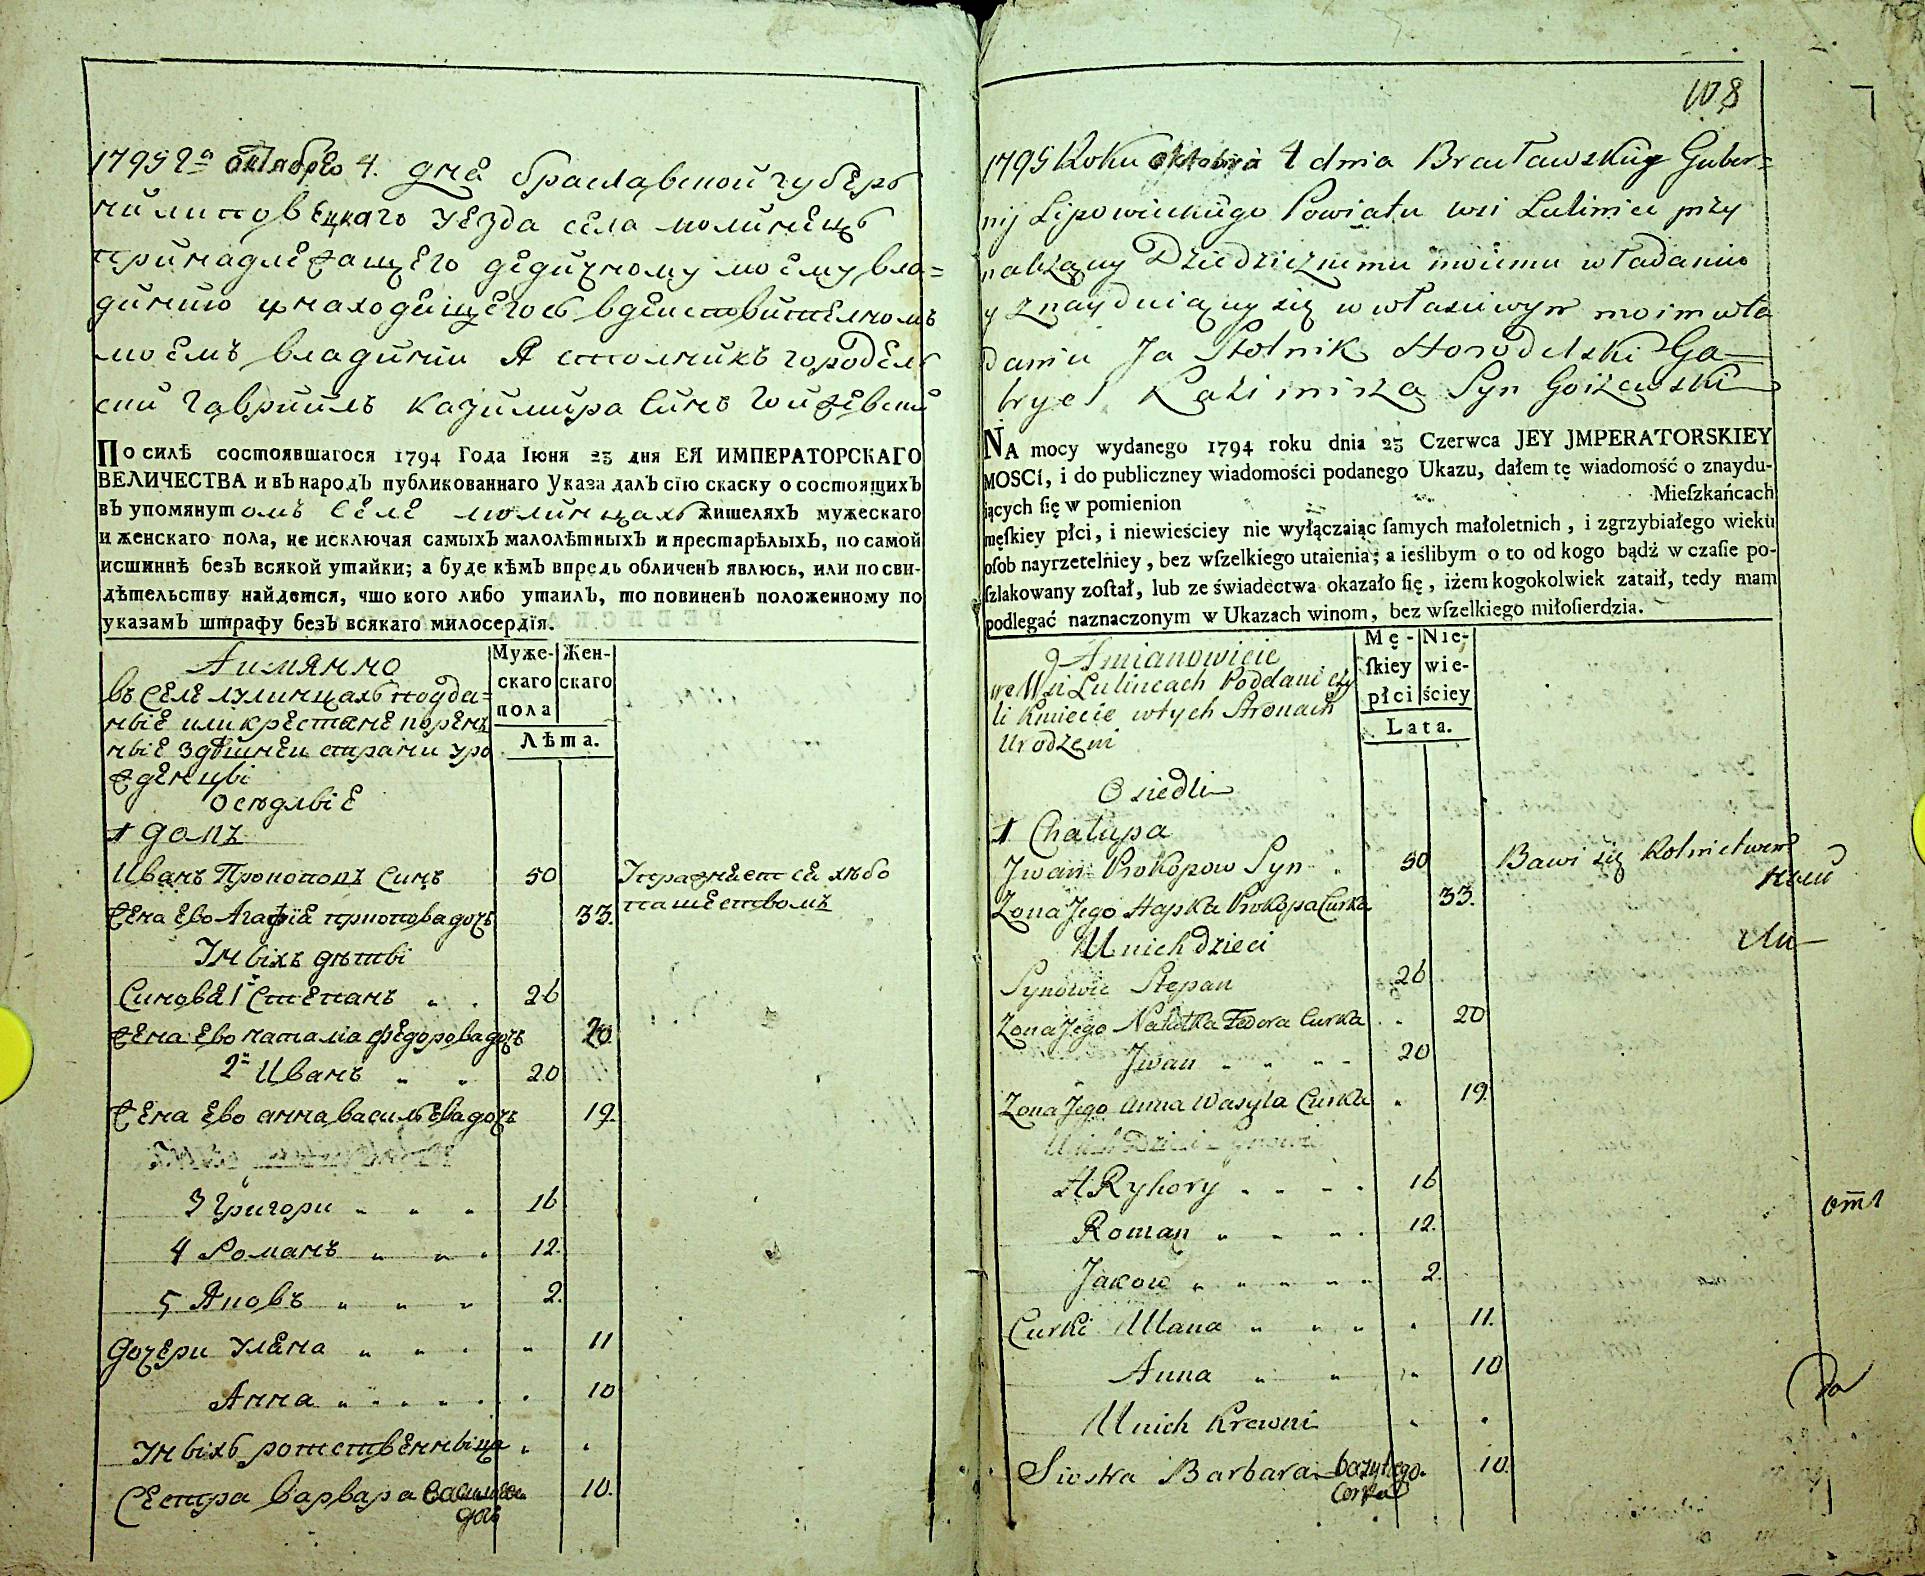 1795 го октября 4. дня браславской губер
нии липовецкаго уезда села люлинецъ
принадлежащего дедичному моему вла=
дению и находещегось вдействителномъ
моемъ владинии Я столникъ городел
ский Гаврыилъ Казимира Синъ Гоижевский
ПО силѣ состоявшагося 1794 Года Іюня 23 дня ЕЯ ИМПЕРАТОРСКАГО
ВЕЛИЧЕСТВА и въ народъ публикованнаго Указа далъ сїю скаску о состоящихъ
въ упомянутомъ Селе люлинцахъ жителяхъ мужескаго
и женскаго пола, не исключая самыхъ малолѣтныхъ и престарѣлыхъ, по самой
истиннѣ безъ всякой утайки; а буде кѣмъ впредь обличенъ явлюсь, или по сви-
дѣтельству найдется, что кого либо утаилъ, то повиненъ положенному по
указамъ штрафу безъ всякаго милосердїя.
Аимянно
въ Селе люлинцахъ подда=
ные или крестяне
ные здѣшнеи страни уро
жденцы
оседлыіе
Муже-
скаго
пола
Жен-
скаго
Лѣта.
1 домъ
Иванъ Прокоповъ Синъ 50 Упражняется хлѣбо
пашествомъ
Жена ево Агафїя прокопова дочъ 33.
Унихъ дѣти
Синовя 1й Степанъ 26
Жена ево наталіа федорова дочъ 20
2й Иванъ 20
Жена ево анна василъева дочъ 19.
3 Григори 16
4 Романъ 12.
5 Яковъ 2.
Дочери Улена 11
Анна 10
Унихъ родственныица
Сестра варвара василева 10.
дочъ
108
1795 Roku oktobra 4 dnia Bracławskiey Guber=
nij Lipowieckiego Powiatu wsi Luliniec przy
należący Dziedzicznemu moiemu władaniu
y znayduiący się w własciwym moim wła
daniu Ja Stolnik Horodelski Ga=
bryel Kazimirza Syn Goiżewski
NA mocy wydanego 1794 roku dnia 23 Czerwca JEY JMPERATORSKIEY
MOSCi, i do publiczney wiadomości podanego Ukazu, dałem tę wiadomość o znaydu-
iących ſię w pomienion Mieſzkańcach
męſkiey płci, i niewieściey nie wyłączaiąc ſamych małoletnich, i zgrzybiałego wieku
oſob nayrzetelniey, bez wſzelkiego utaienia; a ieślibym o to od kogo bądź w czaſie po-
ſzlakowany zoſtał, lub ze świadectwa okazało ſię, iżem kogokolwiek zataił, tedy mam
podlegać naznaczonym w Ukazach winom, bez wſzelkiego miłoſierdzia.
Amianowicie
we Wsi Lulincach Poddani czy
li Kmiecie wtych Stronach
Urodzeni
Mę-
ſkiey
płci
Nie-
wie-
ściey
Lata.
Osiedli
1 Chałupa
Jwan Prokopow Syn 50 Bawi się Rolnictwem
Zona Jego Hapka Prokopa Curka 33.
U nich dzieci
Synowie Stepan 26
Zona Jego Natałka Fedora Curka 20
Jwan 20
Zona Jego Anna Wasyla Curka 19.
Hryhory 16
Roman 12.
Jakow 2.
Curki Ulana 11.
Anna 10
U nich Krewni
Siostra Barbara bazylego 10.
Corka